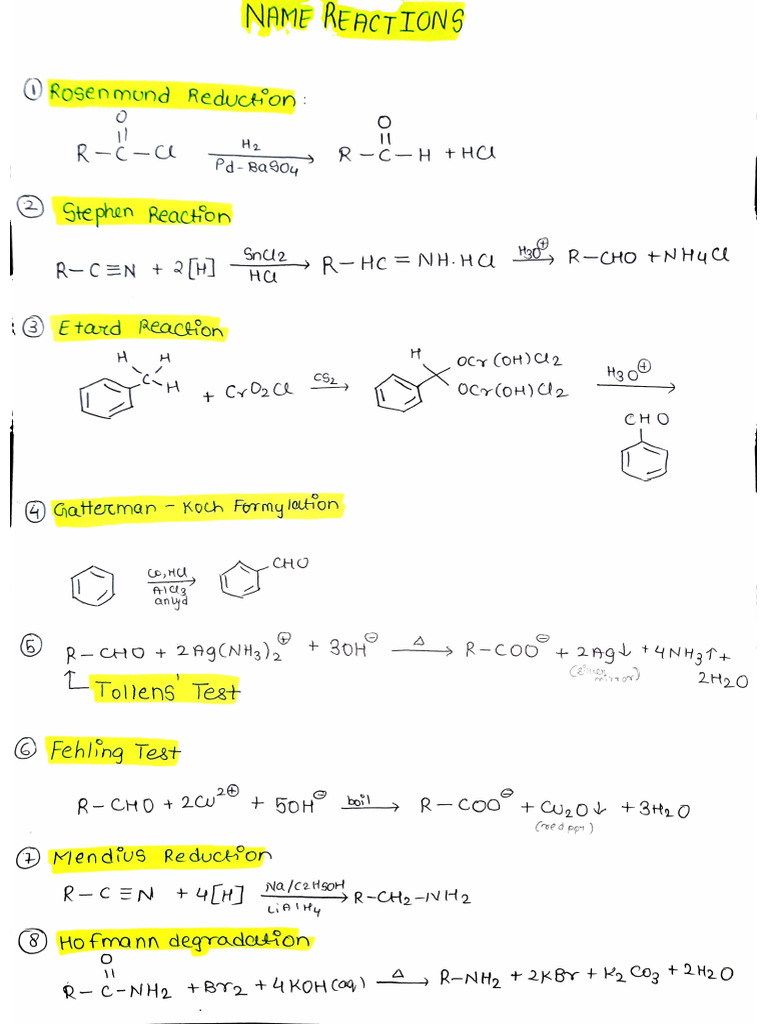 NAME REACTIONS
① Rosenmund Reduction:
O
||
R-C-Cl H2 Pd-BaSO4 → R-C-H + HCl
O
||
② Stephen Reaction
R-C≡N + 2[H] SnCl2 HCl → R-HC=NH.HCl H3O⊕ → R-CHO + NH4Cl
③ Etard Reaction
H H
C-H + CrO2Cl CS2 → H OCr(OH)Cl2 OCr(OH)Cl2 H3O⊕ →
CHO
④ Gatterman - Koch Formylation
CO, HCl AlCl3 anyd → CHO
⑤ R-CHO + 2Ag(NH3)2⊕ + 3OH⊖ Δ → R-COO⊖ + 2Ag↓ + 4NH3↑ +
(silver mirror) 2H2O
↑ Tollens' Test
⑥ Fehling Test
R-CHO + 2Cu2⊕ + 5OH⊖ boil → R-COO⊖ + Cu2O↓ + 3H2O
(red ppt)
⑦ Mendius Reduction
R-C≡N + 4[H] Na/C2H5OH LiAlH4 → R-CH2-NH2
⑧ Hofmann degradation
O
||
R-C-NH2 + Br2 + 4KOH(aq) Δ → R-NH2 + 2KBr + K2CO3 + 2H2O